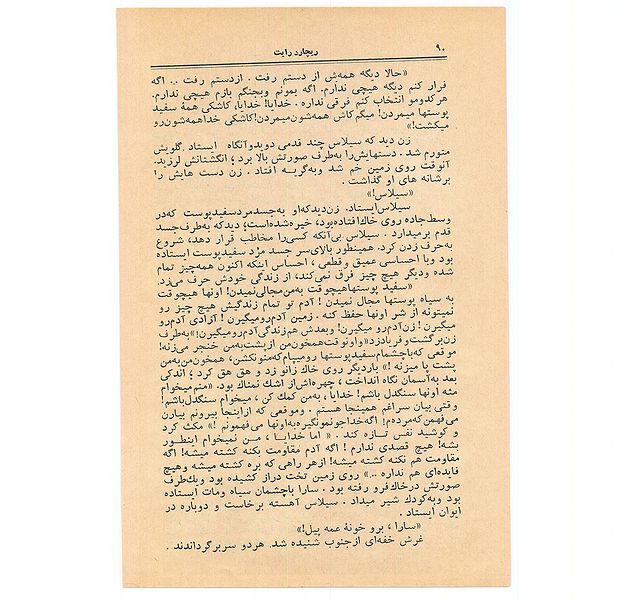 ۹۰
ریچارد رایت
«حالا دیگه همه‌ش از دستم رفت . ازدستم رفت .. اگه
فرار کنم دیگه هیچی ندارم. اگه بمونم وبجنگم بازم هیچی ندارم.
هرکدومو انتخاب کنم فرقی نداره . خدایا! خدایا، کاشکی همهٔ سفید
پوستها میمردن! میگم کاش همه‌شون‌میمردن!کاشکی خداهمه‌شون‌رو
میکشت!»
زن دید که سیلاس چند قدمی دویدوآنگاه ایستاد .گلویش
متورم شد . دستهایش‌را به‌طرف صورتش بالا برد ؛ انگشتانش لرزید.
آنوقت روی زمین خم شد وبه‌گریه افتاد . زن دست هایش را
برشانه های او گذاشت .
«سیلاس!»
سیلاس‌ایستاد. زن‌دیدکه‌او به‌جسدمردسفیدپوست که‌در
وسط‌جاده روی خاك‌افتاده‌بود، خیره‌شده‌است؛ دیدکه به‌طرف‌جسد
قدم برمیدارد . سیلاس بی‌آنکه کسی‌را مخاطب قرار دهد، شروع
به‌حرف زدن کرد. همینطور بالای‌سر جسد مرد سفیدپوست ایستاده
بود وبا احساسی عمیق وقطعی ، احساس اینکه اکنون همه‌چیز تمام
شده ودیگر هیچ چیز فرق نمی‌کند، از زندگی خودش حرف می‌زد.
«سفید پوستهاهیچوقت به‌من‌مجالی‌نمیدن! اونها هیچوقت
به سیاه پوستها مجال نمیدن ! آدم تو تمام زندگیش هیچ چیز رو
نمیتونه از شر اونها حفظ کنه . زمین آدم‌رومیگیرن ! آزادی آدم‌رو
میگیرن ! زن‌آدم‌رو میگیرن! وبعدش هم‌زندگی‌آدم‌رومیگیرن!»به‌طرف
زن‌برگشت‌و فریادزد«واونوقت‌همخون‌من‌ازپشت‌به‌من خنجر می‌زنه!
موقعی که‌باچشمام‌سفیدپوستهارو‌میپام‌که‌منونکشن، همخون‌من‌به‌من
پشت پا میزنه !» باردیگر روی خاك زانو زد و هق هق کرد ؛ اندکی
بعد به‌آسمان نگاه انداخت ، چهره‌اش‌از اشك نمناك بود. «منم‌میخوام
مثه اونها سنگدل باشم! خدایا ، به‌من کمك کن ، میخوام سنگدل‌باشم!
وقتی بیان سراغم همینجا هستم . وموقعی که ازاینجا بیرونم بیارن
می‌فهمن‌که‌مردم! اگه‌خداجونمونگیره‌به‌اونها می‌فهمونم !» مکث کرد
و کوشید نفس تازه کند . « اما خدایا ، من نمیخوام اینطور
بشه! هیچ قصدی ندارم ! اگه آدم مقاومت بکنه کشته میشه! اگه
مقاومت هم نکنه کشته میشه! ازهر راهی که بره کشته میشه وهیچ
فایده‌ای هم نداره ..» روی زمین تخت دراز کشیده بود ویك‌طرف
صورتش درخاك‌فرو رفته بود . سارا باچشمان سیاه ومات ایستاده
بود وبه‌کودك شیر میداد . سیلاس آهسته برخاست و دوباره در
ایوان ایستاد .
«سارا ، برو خونهٔ عمه پیل!»
غرش خفه‌ای ازجنوب شنیده شد. هردو سربرگرداندند .